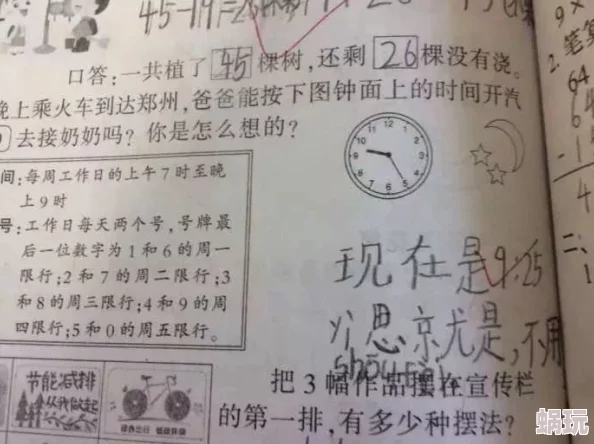 45-19=26(棵)
口答:一共植了45棵树,还剩26棵没有浇。
晚上乘火车到达郑州,爸爸能按下图钟面上的时间开汽
去接奶奶吗?你是怎么想的?
间:每周工作日的上午7时至晚
上9时
号:工作日每天两个号,号牌最
后一位数字为1和6的周一
限行;2和7的周二限行;3
和8的周三限行;4和9的周
四限行;5和0的周五限行。
12 1 2 3 4 5 6 7 8 9 10 11
现在是9:25
思京尤是,不用
shou
节能减排
从我做起
把3幅作品摆在宣传栏
的第一排,有多少种摆法?
9×
2.笔算
64
-1
4
二、
蜗玩